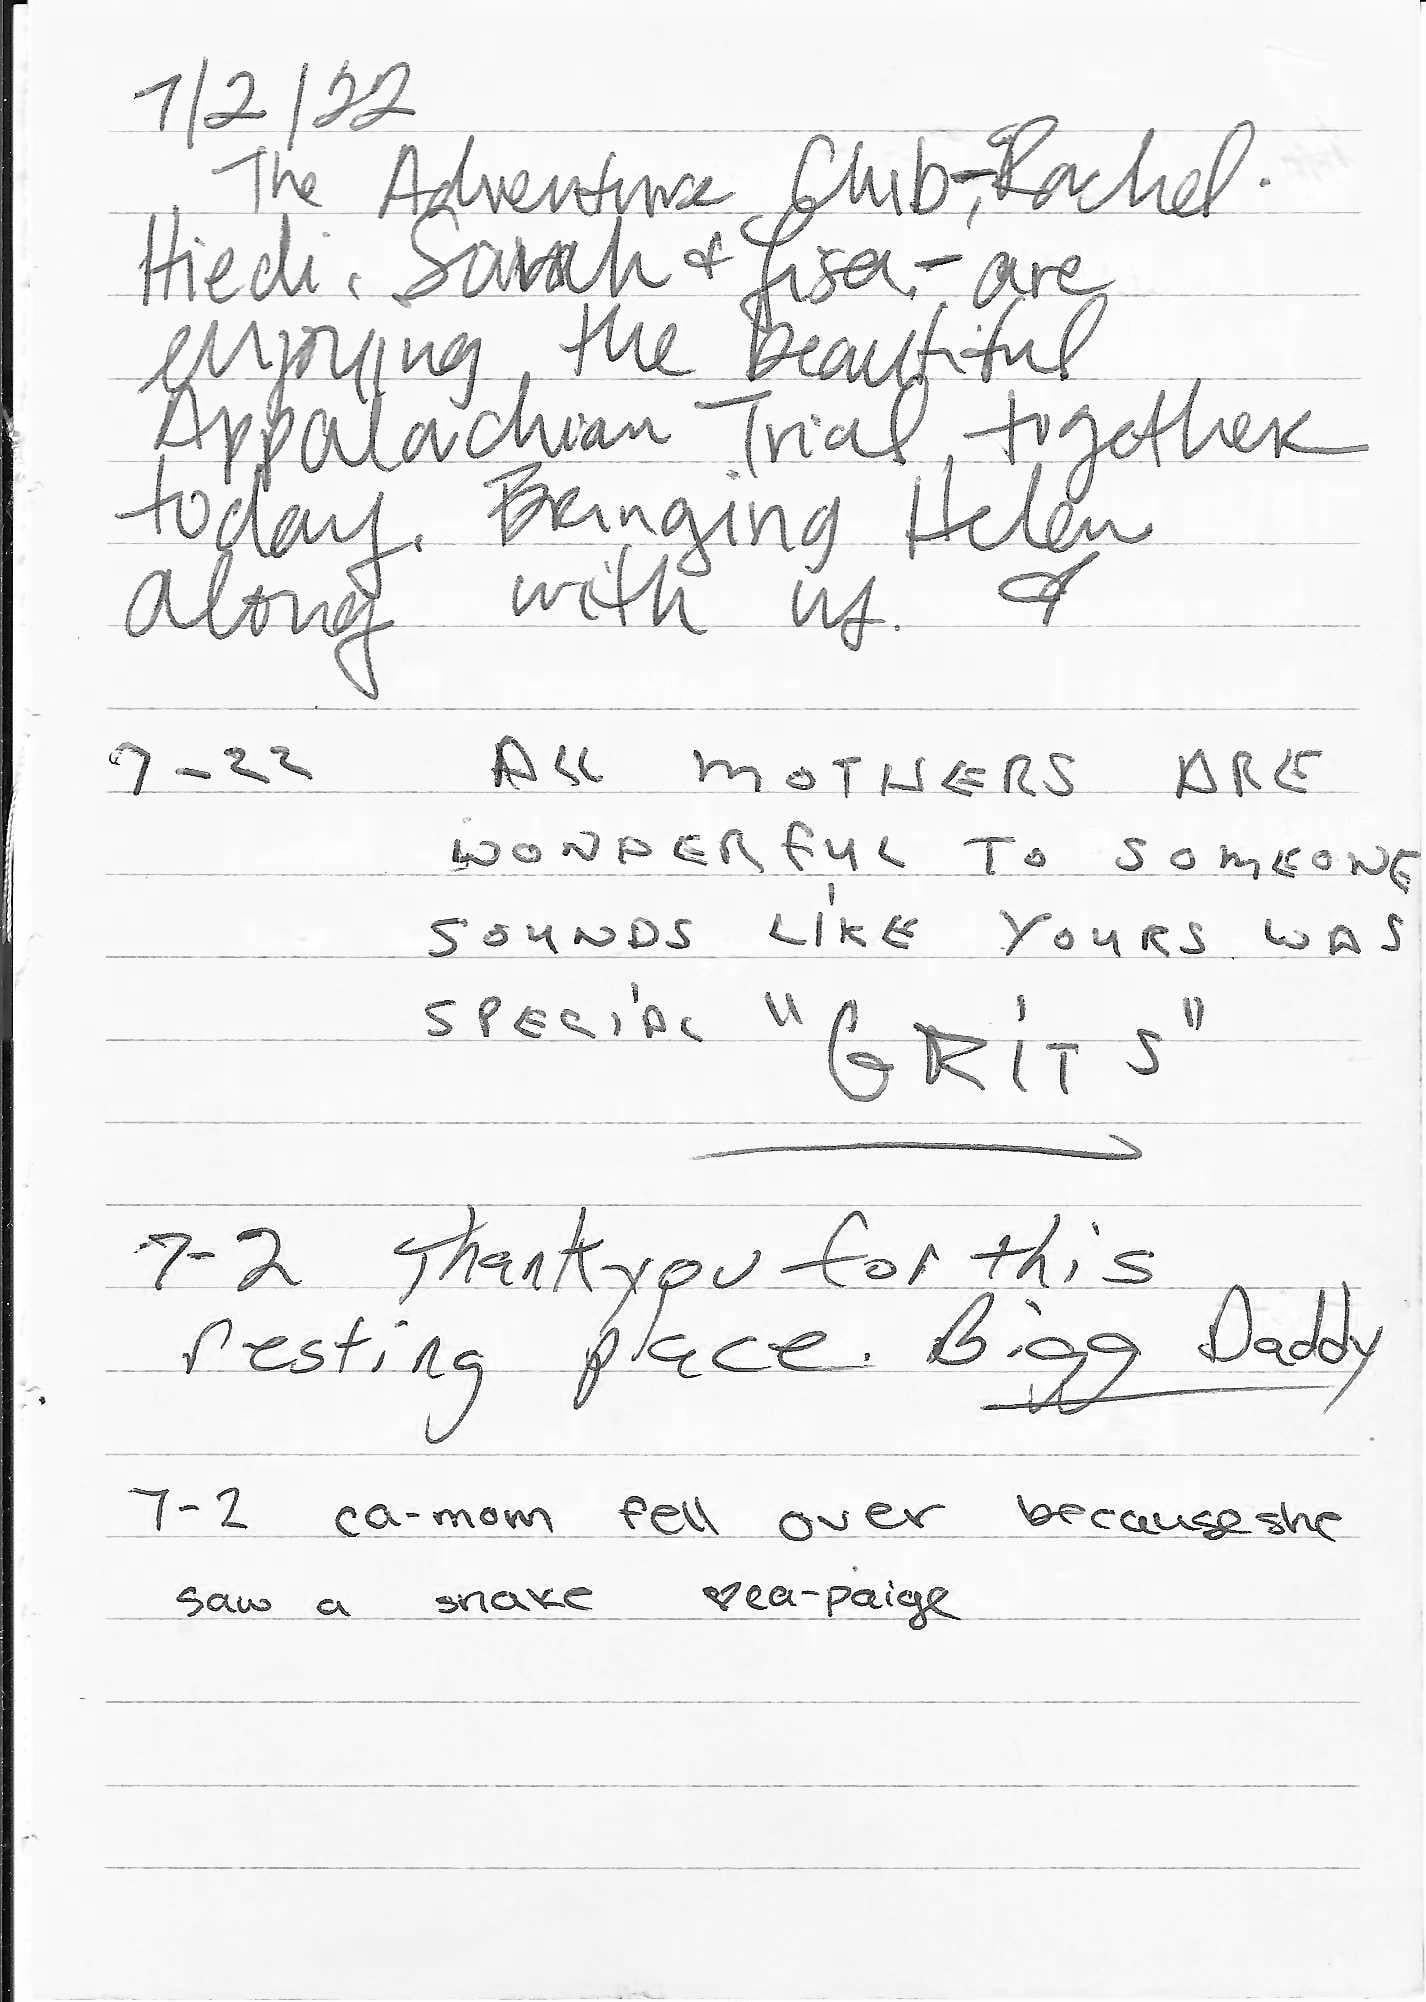 7/2/22
The Adventure Club-, Rachel.
Hiedi, Sarah & Lisa - are
enjoying the beautiful
Appalachian Trial together
today. Bringing Helen
along with us. &
7-22 ALL MOTHERS ARE
WONDERFUL TO SOMEONE
SOUNDS LIKE YOURS WAS
SPECIAL "GRITS"
7-2 Thank you for this
resting place. Bigg Daddy
7-2 ca-mom fell over because she
saw a snake ♥ea-paige